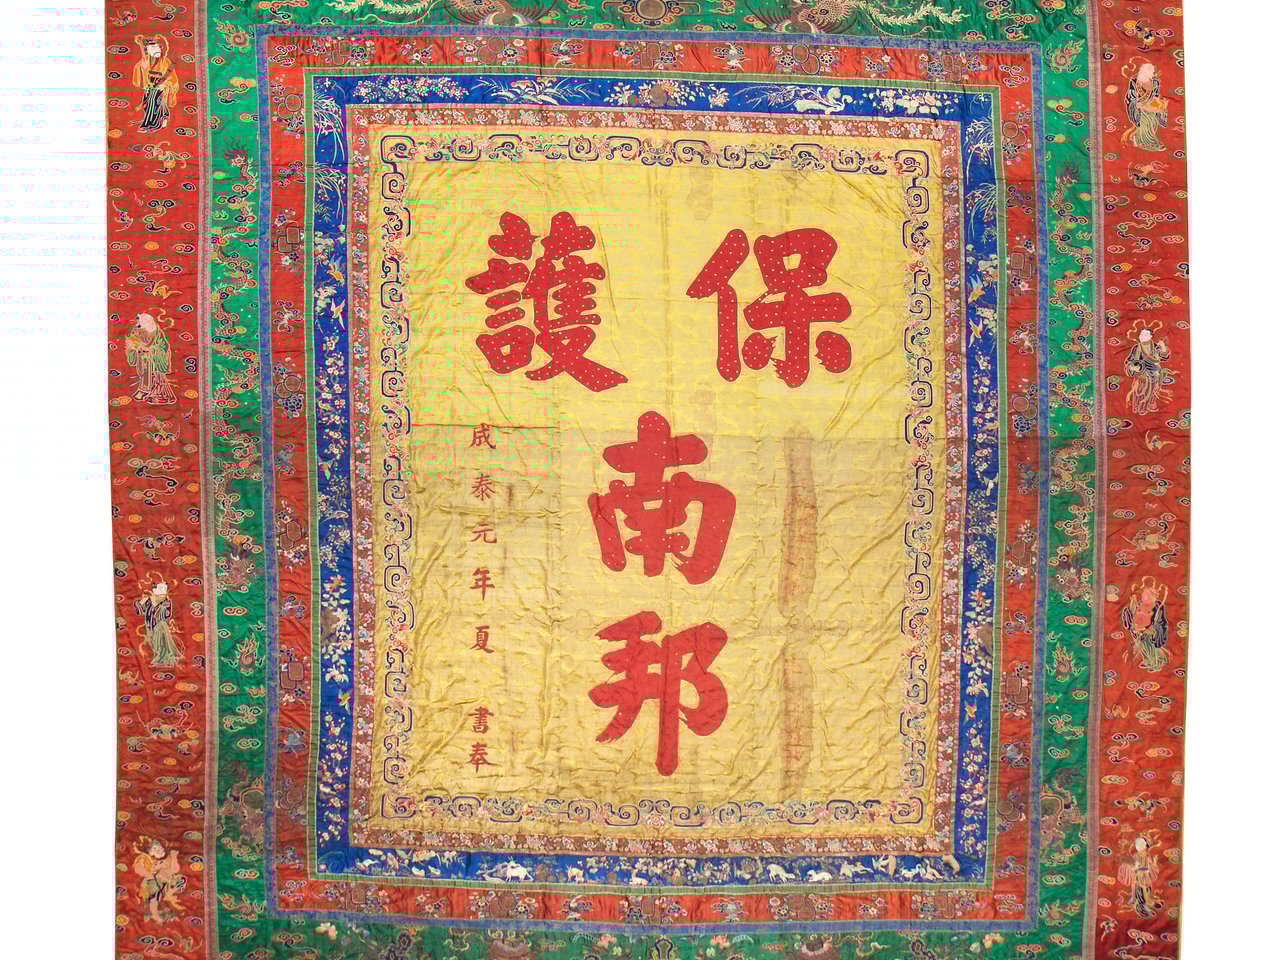 保護
南
邦
成泰元年夏書奉